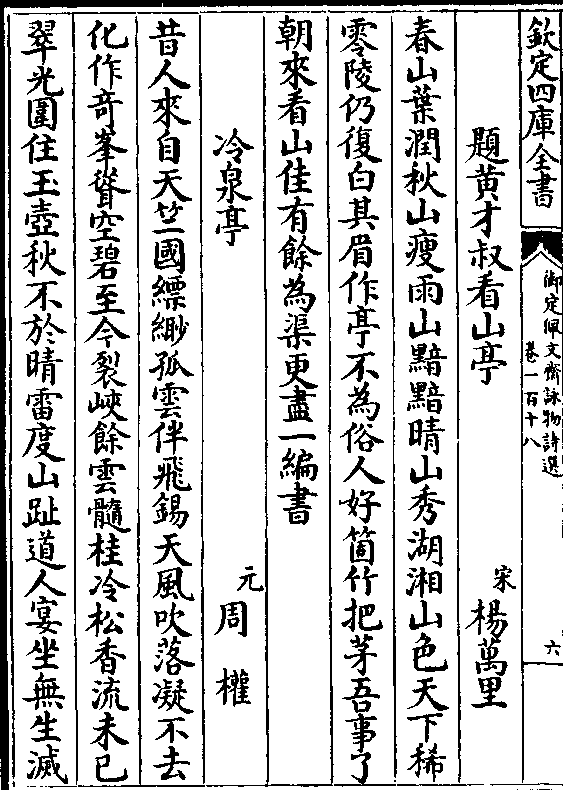 欽定四庫全書
御定佩文齋詠物詩選
卷一百十八
六
題黄才叔看山亭
宋
楊萬里
春山葉潤秋山瘦雨山黯黯晴山秀湖湘山色天下稀
零陵仍復白其眉作亭不為俗人好箇竹把茅吾事了
朝來看山佳有餘為渠更盡一編書
冷泉亭
元
周權
昔人來自天竺國縹緲孤雲伴飛錫天風吹落凝不去
化作竒峯聳空碧至今裂峽餘雲髓桂冷松香流未已
翠光圍住玉壺秋不於晴雷度山趾道人宴坐無生滅